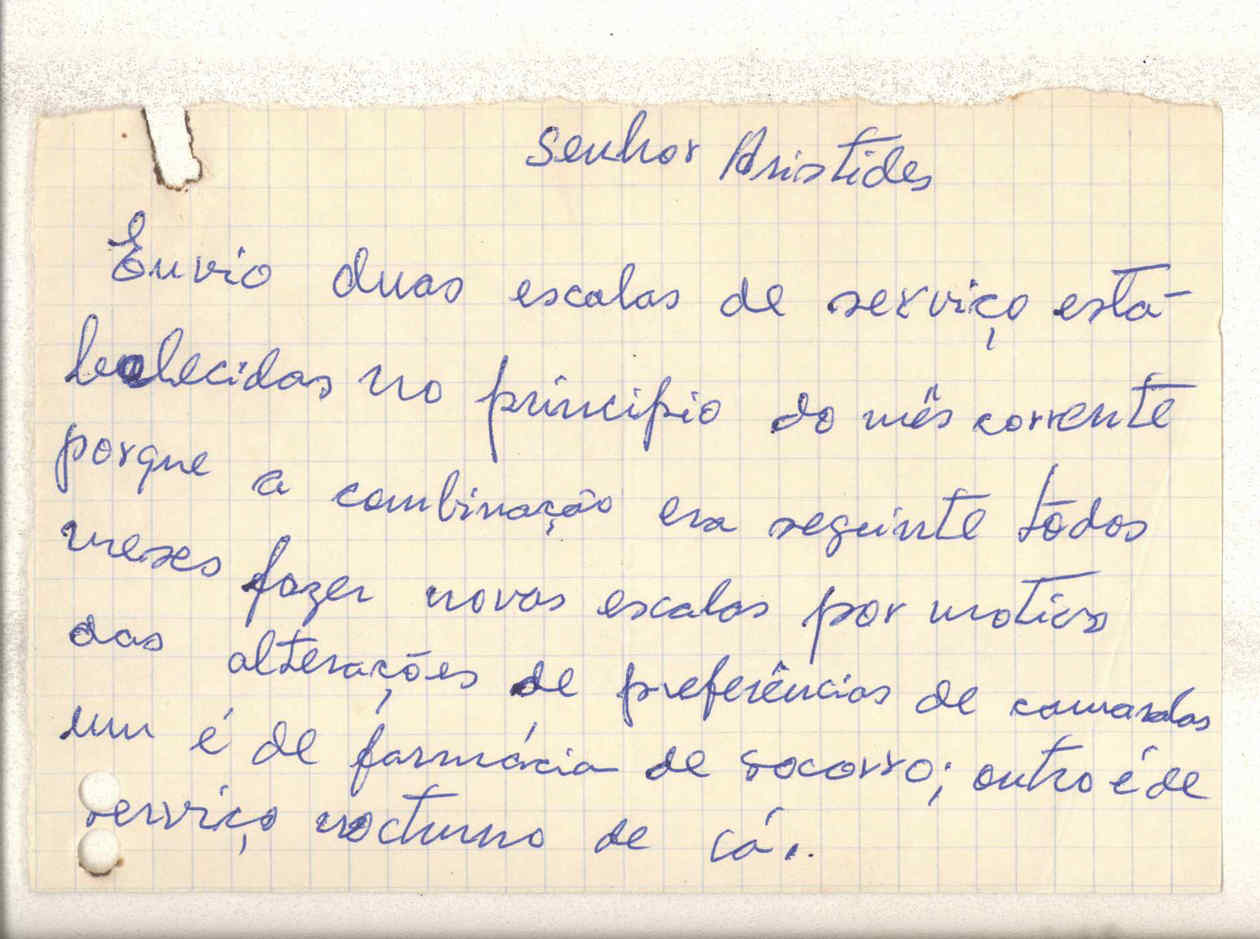 Senhor Aristides
Envio duas escalas de serviço esta-
belecidas no princípio do mês corrente
porque a combinação era seguinte todos
meses fazer novas escalas por motivos
das alterações de preferências de camaradas
um é de farmácia de socorro; outro é de
serviço nocturno de cá..